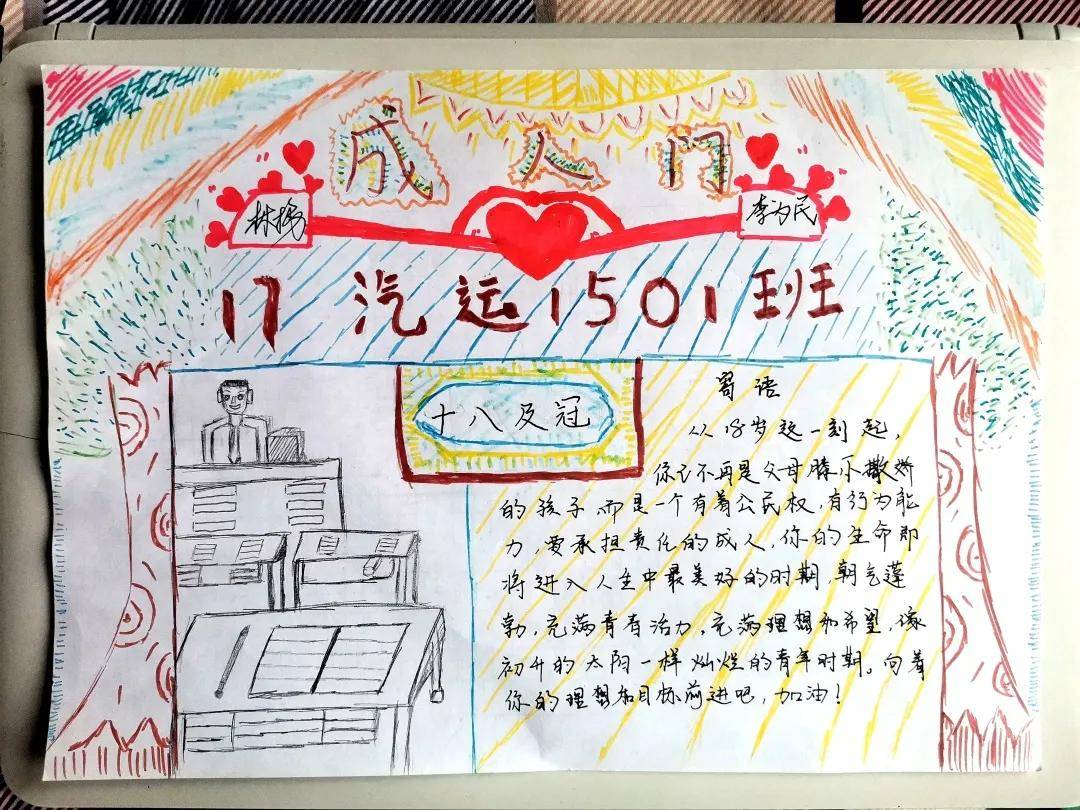 成人门
林扬
李为民
17汽运1501班
十八及冠
寄语
从18岁这一刻起,
你已不再是父母膝下撒娇
的孩子,而是一个有着公民权,有行为能
力,要承担责任的成人,你的生命即
将进入人生中最美好的时期,朝气蓬
勃,充满青春活力,充满理想和希望,像
初升的太阳一样灿烂的青年时期。向着
你的理想和目标前进吧,加油!